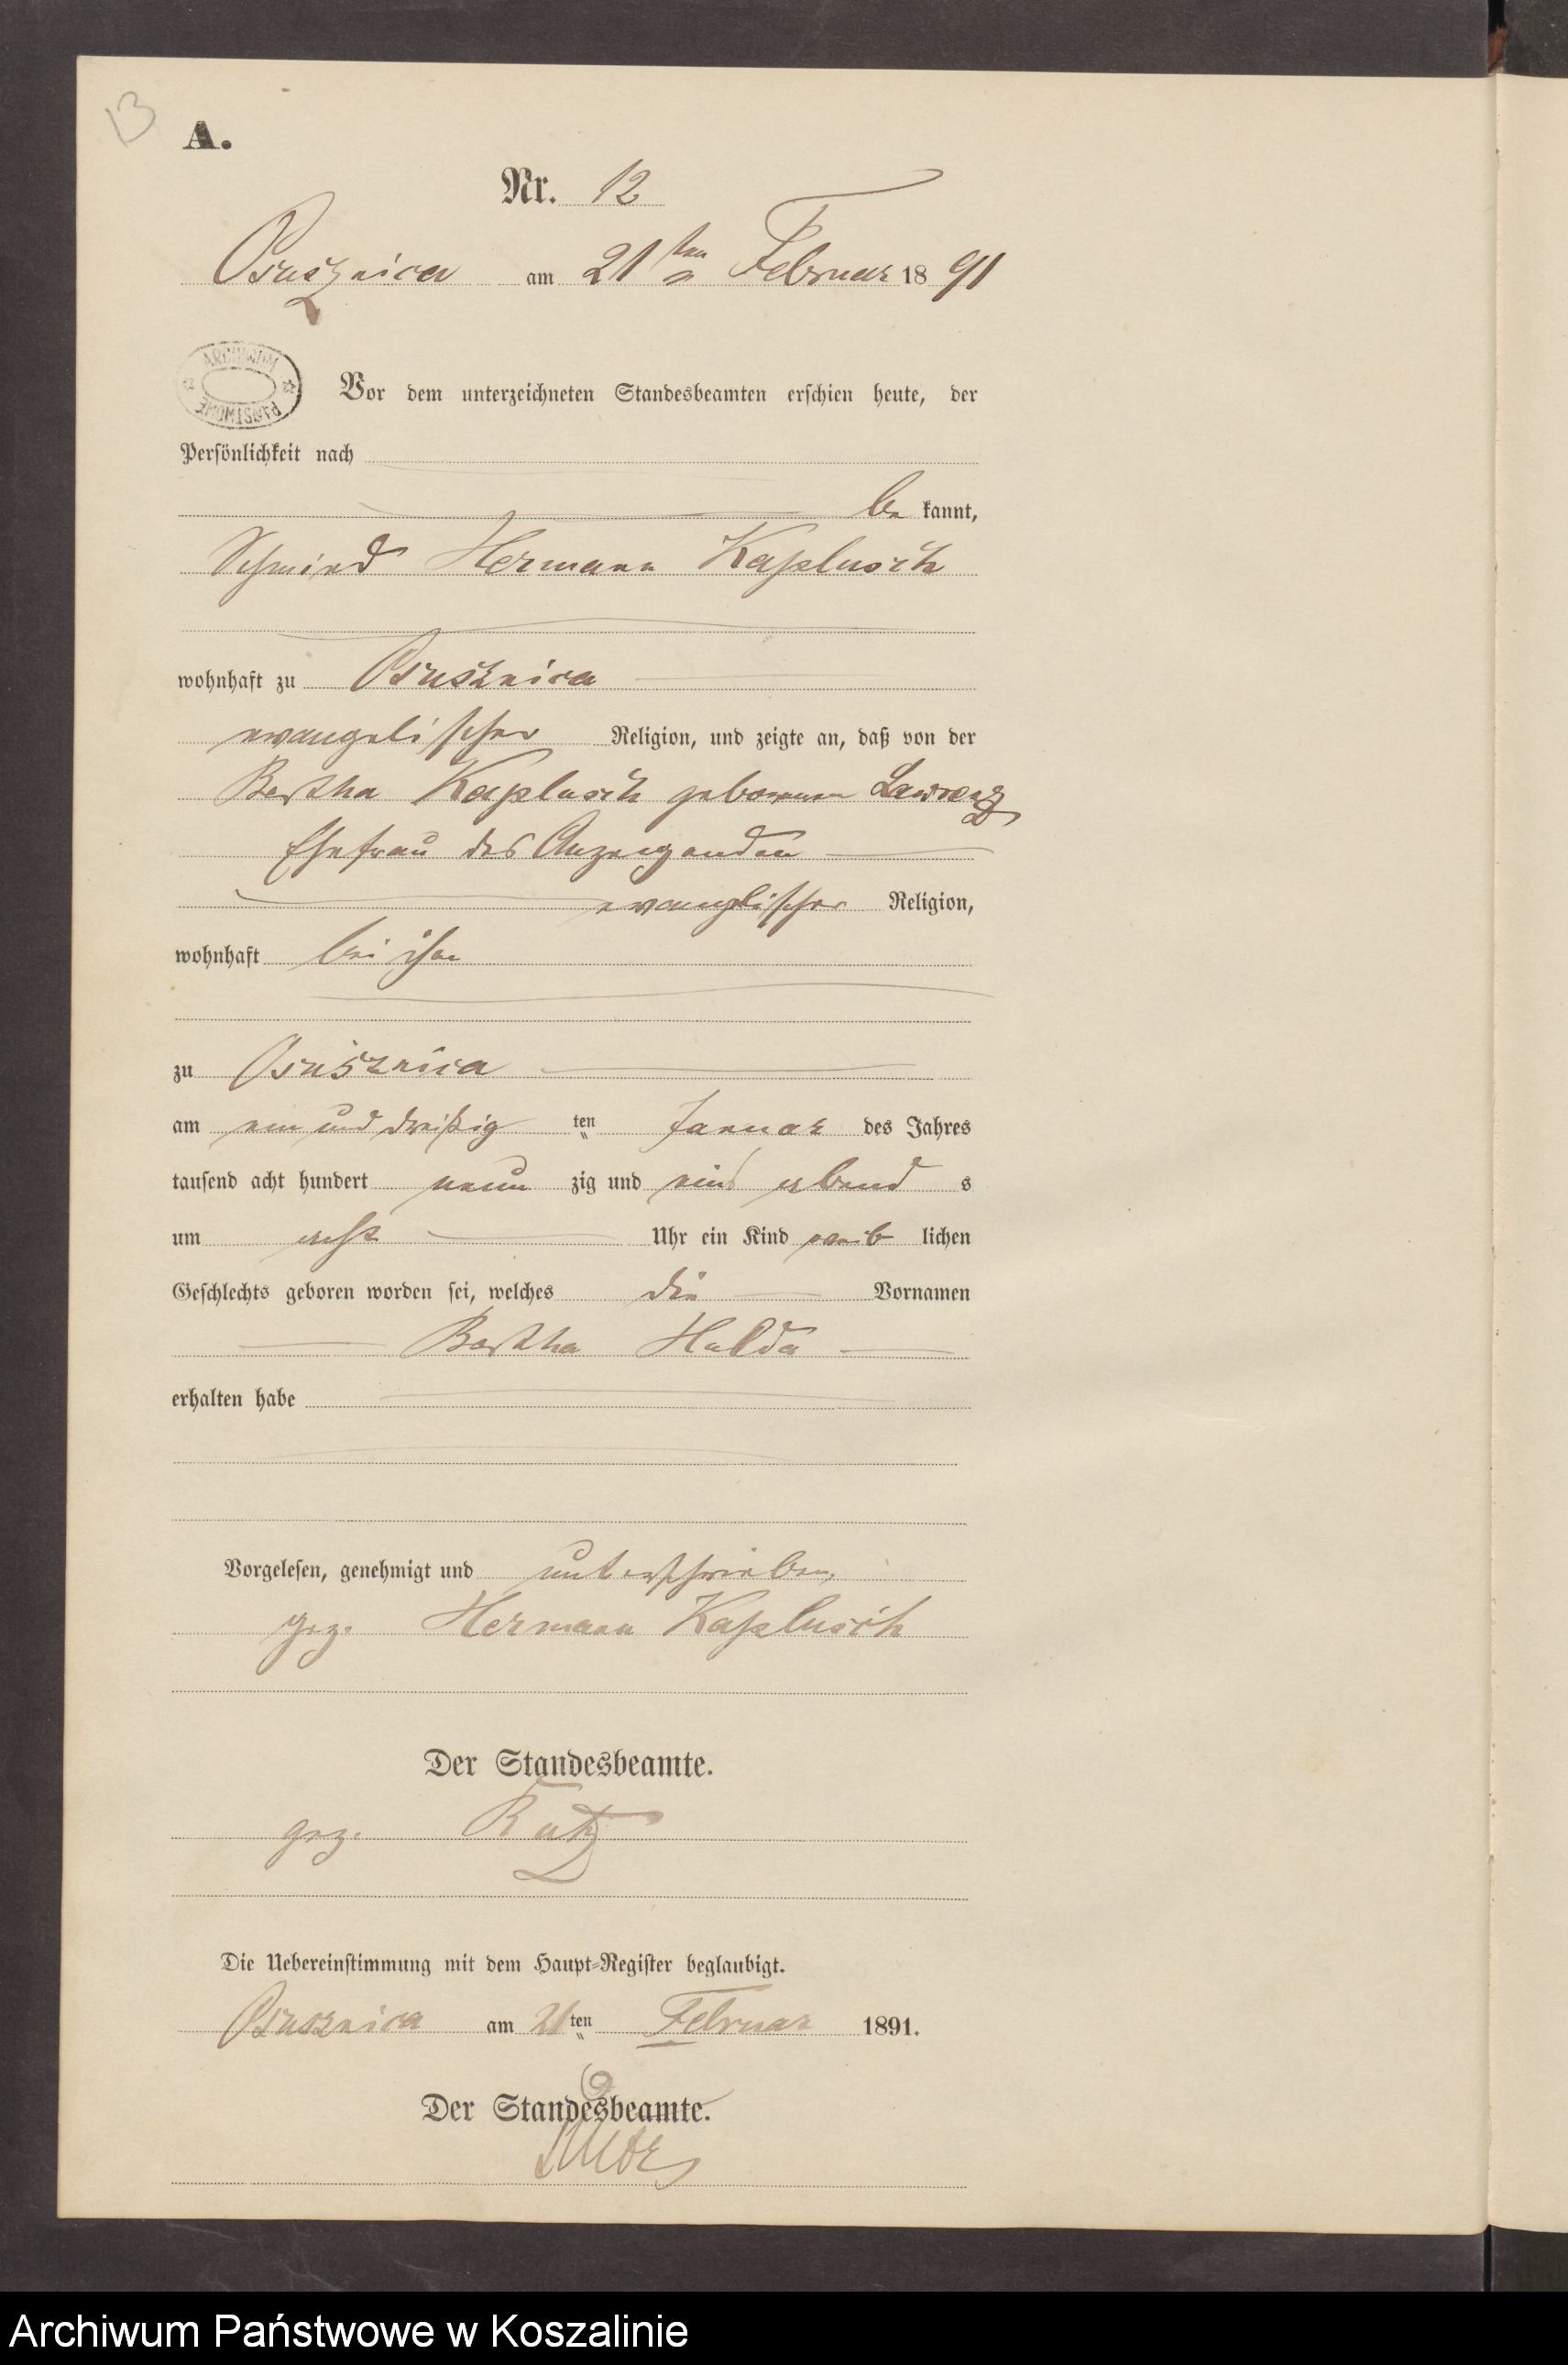 13
A.
Nr. 12
Osusznica am 21ten Februar 1891
ARCHIWUM PAŃSTWOWE
Vor dem unterzeichneten Standesbeamten erschien heute, der
Persönlichkeit nach
be kannt,
Schmied Hermann Kaplusch
wohnhaft zu Osusznica
evangelischer Religion, und zeigte an, daß von der
Bertha Kaplusch geborenen Lawrenz
Ehefrau des Anzeigenden
evanglischer Religion,
wohnhaft bei ihm
zu Osusznica
am ein und dreißig ten Januar des Jahres
tausend acht hundert neun zig und eins abend s
um acht Uhr ein Kind weib lichen
Geschlechts geboren worden sei, welches die Vornamen
Bertha Hulda
erhalten habe
Vorgelesen, genehmigt und unterschrieben
gez. Hermann Kaplusch
Der Standesbeamte.
gez.
Die Uebereinstimmung mit dem Haupt-Register beglaubigt.
Osusznica am 21ten Februar 1891.
Der Standesbeamte.
Archiwum Państwowe w Koszalinie